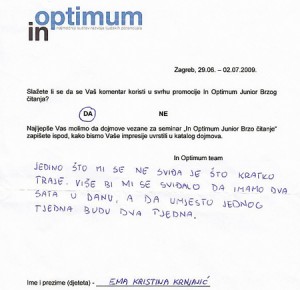 in optimum
Zagreb, 29.06. – 02.07.2009.
Slažete li se da se Vaš komentar koristi u svrhu promocije In Optimum Junior Brzog
čitanja?
DA NE
Najljepše Vas molimo da dojmove vezane za seminar „In Optimum Junior Brzo čitanje"
zapišete ispod, kako bismo Vaše impresije uvrstili u katalog dojmova.
In Optimum team
JEDINO ŠTO MI SE NE SVIĐA JE ŠTO KRATKO
TRAJE. VIŠE BI MI SE SVIĐALO DA IMAMO DVA
SATA U DANU, A DA UMJESTO JEDNOG
TJEDNA BUDU DVA TJEDNA.
Ime i prezime (djeteta) - EMA KRISTINA KRNJAIĆ